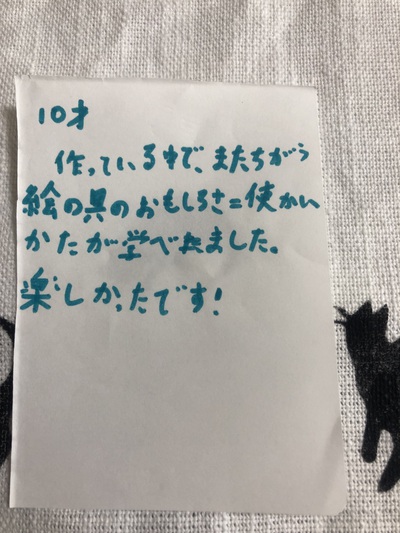 10才
作っている中で、またちがう
絵の具のおもしろさ=使かい
かたが学べれました。
楽しかったです!